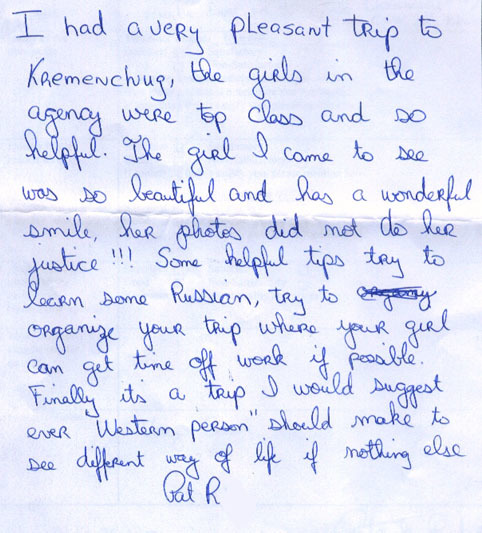 I had a very pleasant trip to
Kremenchug, the girls in the
agency were top class and so
helpful. The girl I came to see
was so beautiful and has a wonderful
smile, her photos did not do her
justice !!! Some helpful tips try to
learn some Russian, try to
organize your trip where your girl
can get time off work if possible.
Finally its a trip I would suggest
ever "Western person" should make to
see different way of life if nothing else
Pat R